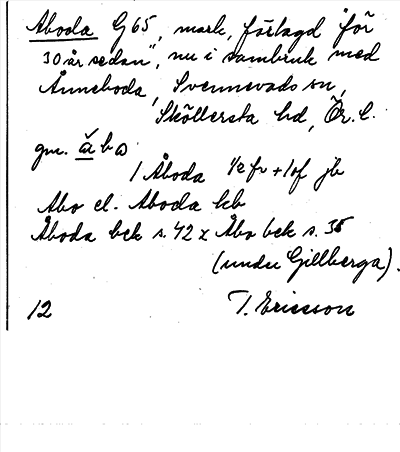 Åboda G65, mark, förlagd "för
30 år sedan", nu i sambruk med
Änneboda, Svennevads sn,
Sköllersta hd, Ör. l.
gm. åbo
1 Åboda 1/2 fr + 1 of jb
Åbo el. Åboda kb
Åboda bck s. 42 x Åbo bck s. 35
(under Gillberga).
12 T. Ericsson